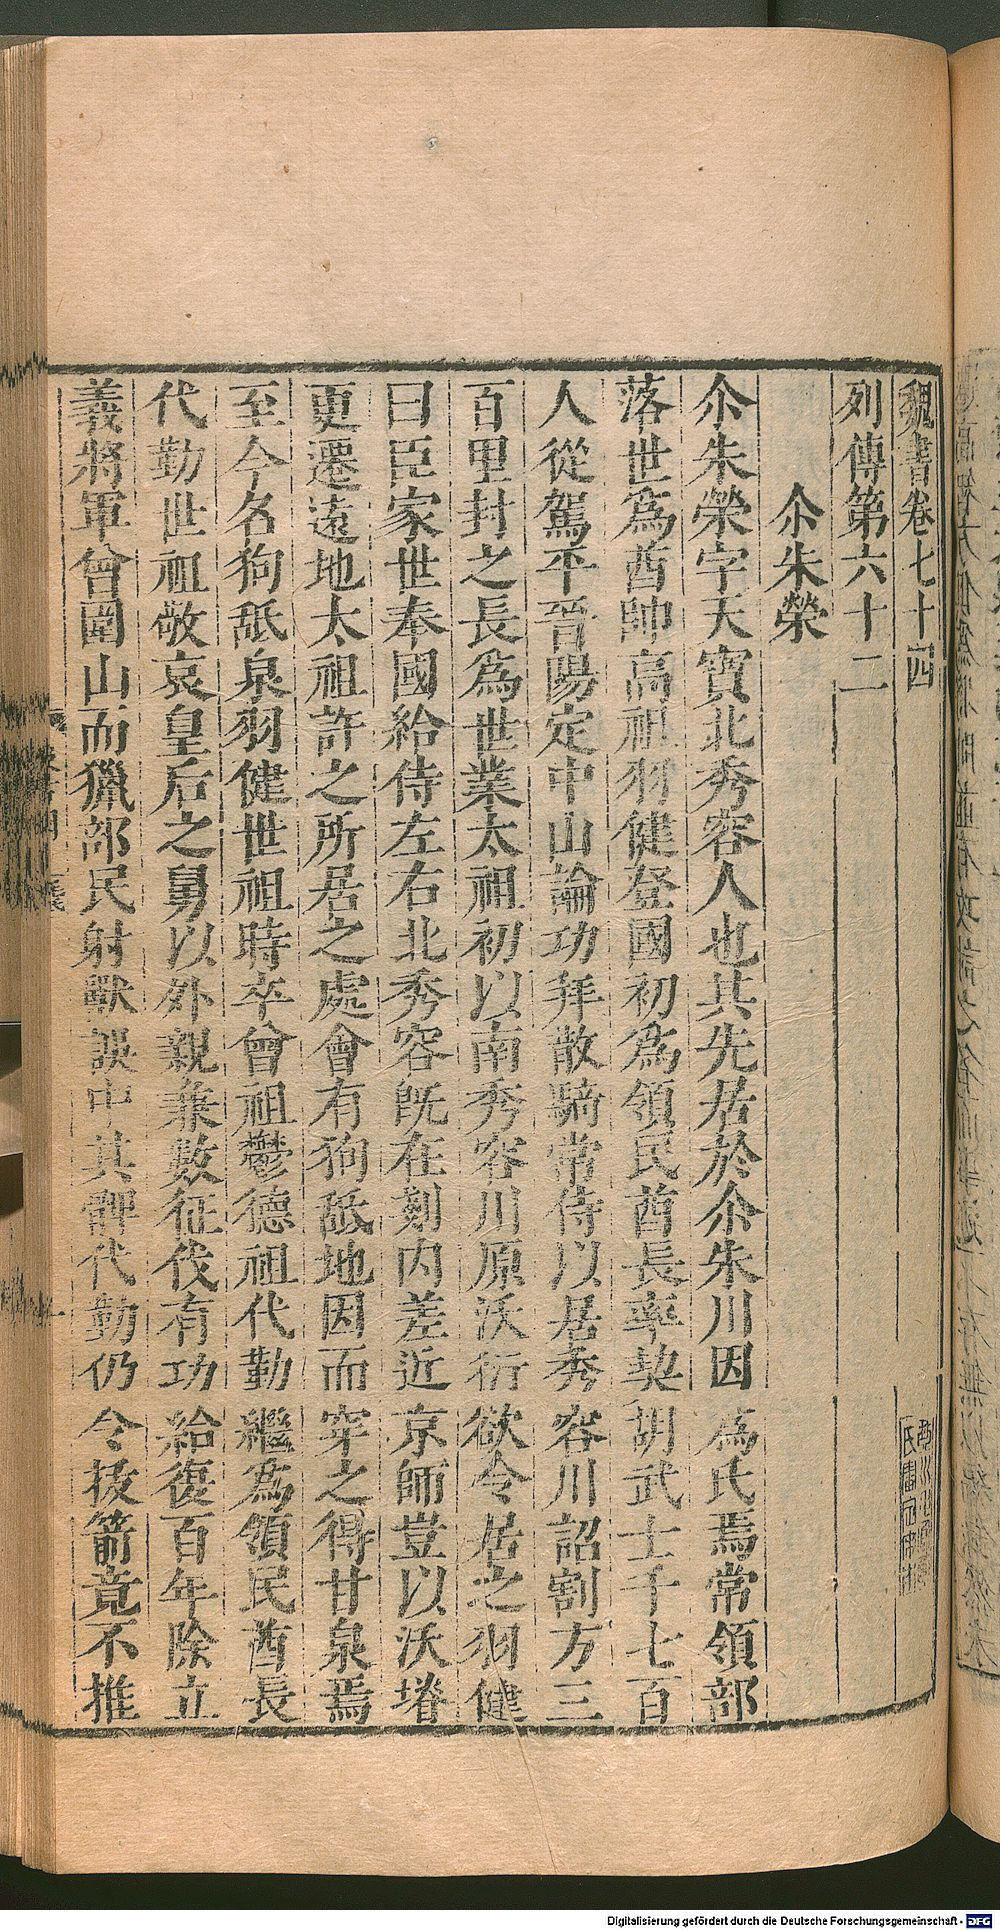 魏書卷七十四
列傳第六十二
尒朱榮
尒朱榮字天寶北秀容人也其先居於尒朱川因為氏焉常領部
落世為酋帥高祖羽健登國初為領民酋長率契胡武士千七百
人從駕平晉陽定中山論功拜散騎常侍以居秀容川詔割方三
百里封之長為世業太祖初以南秀容川原沃衍欲令居之羽健
曰臣家世奉國給侍左右北秀容既在剗內差近京師豈以沃塉
更遷遠地太祖許之所居之處會有狗舐地因而穿之得甘泉焉
至今名狗舐泉羽健世祖時卒曾祖鬱德祖代勤繼為領民酋長
代勤世祖敬哀皇后之舅以外親兼數征伐有功給復百年除立
義將軍曾圍山而獵部民射獸誤中其髀代勤仍令拔箭竟不推
Digitalisierung gefördert durch die Deutsche Forschungsgemeinschaft - DFG